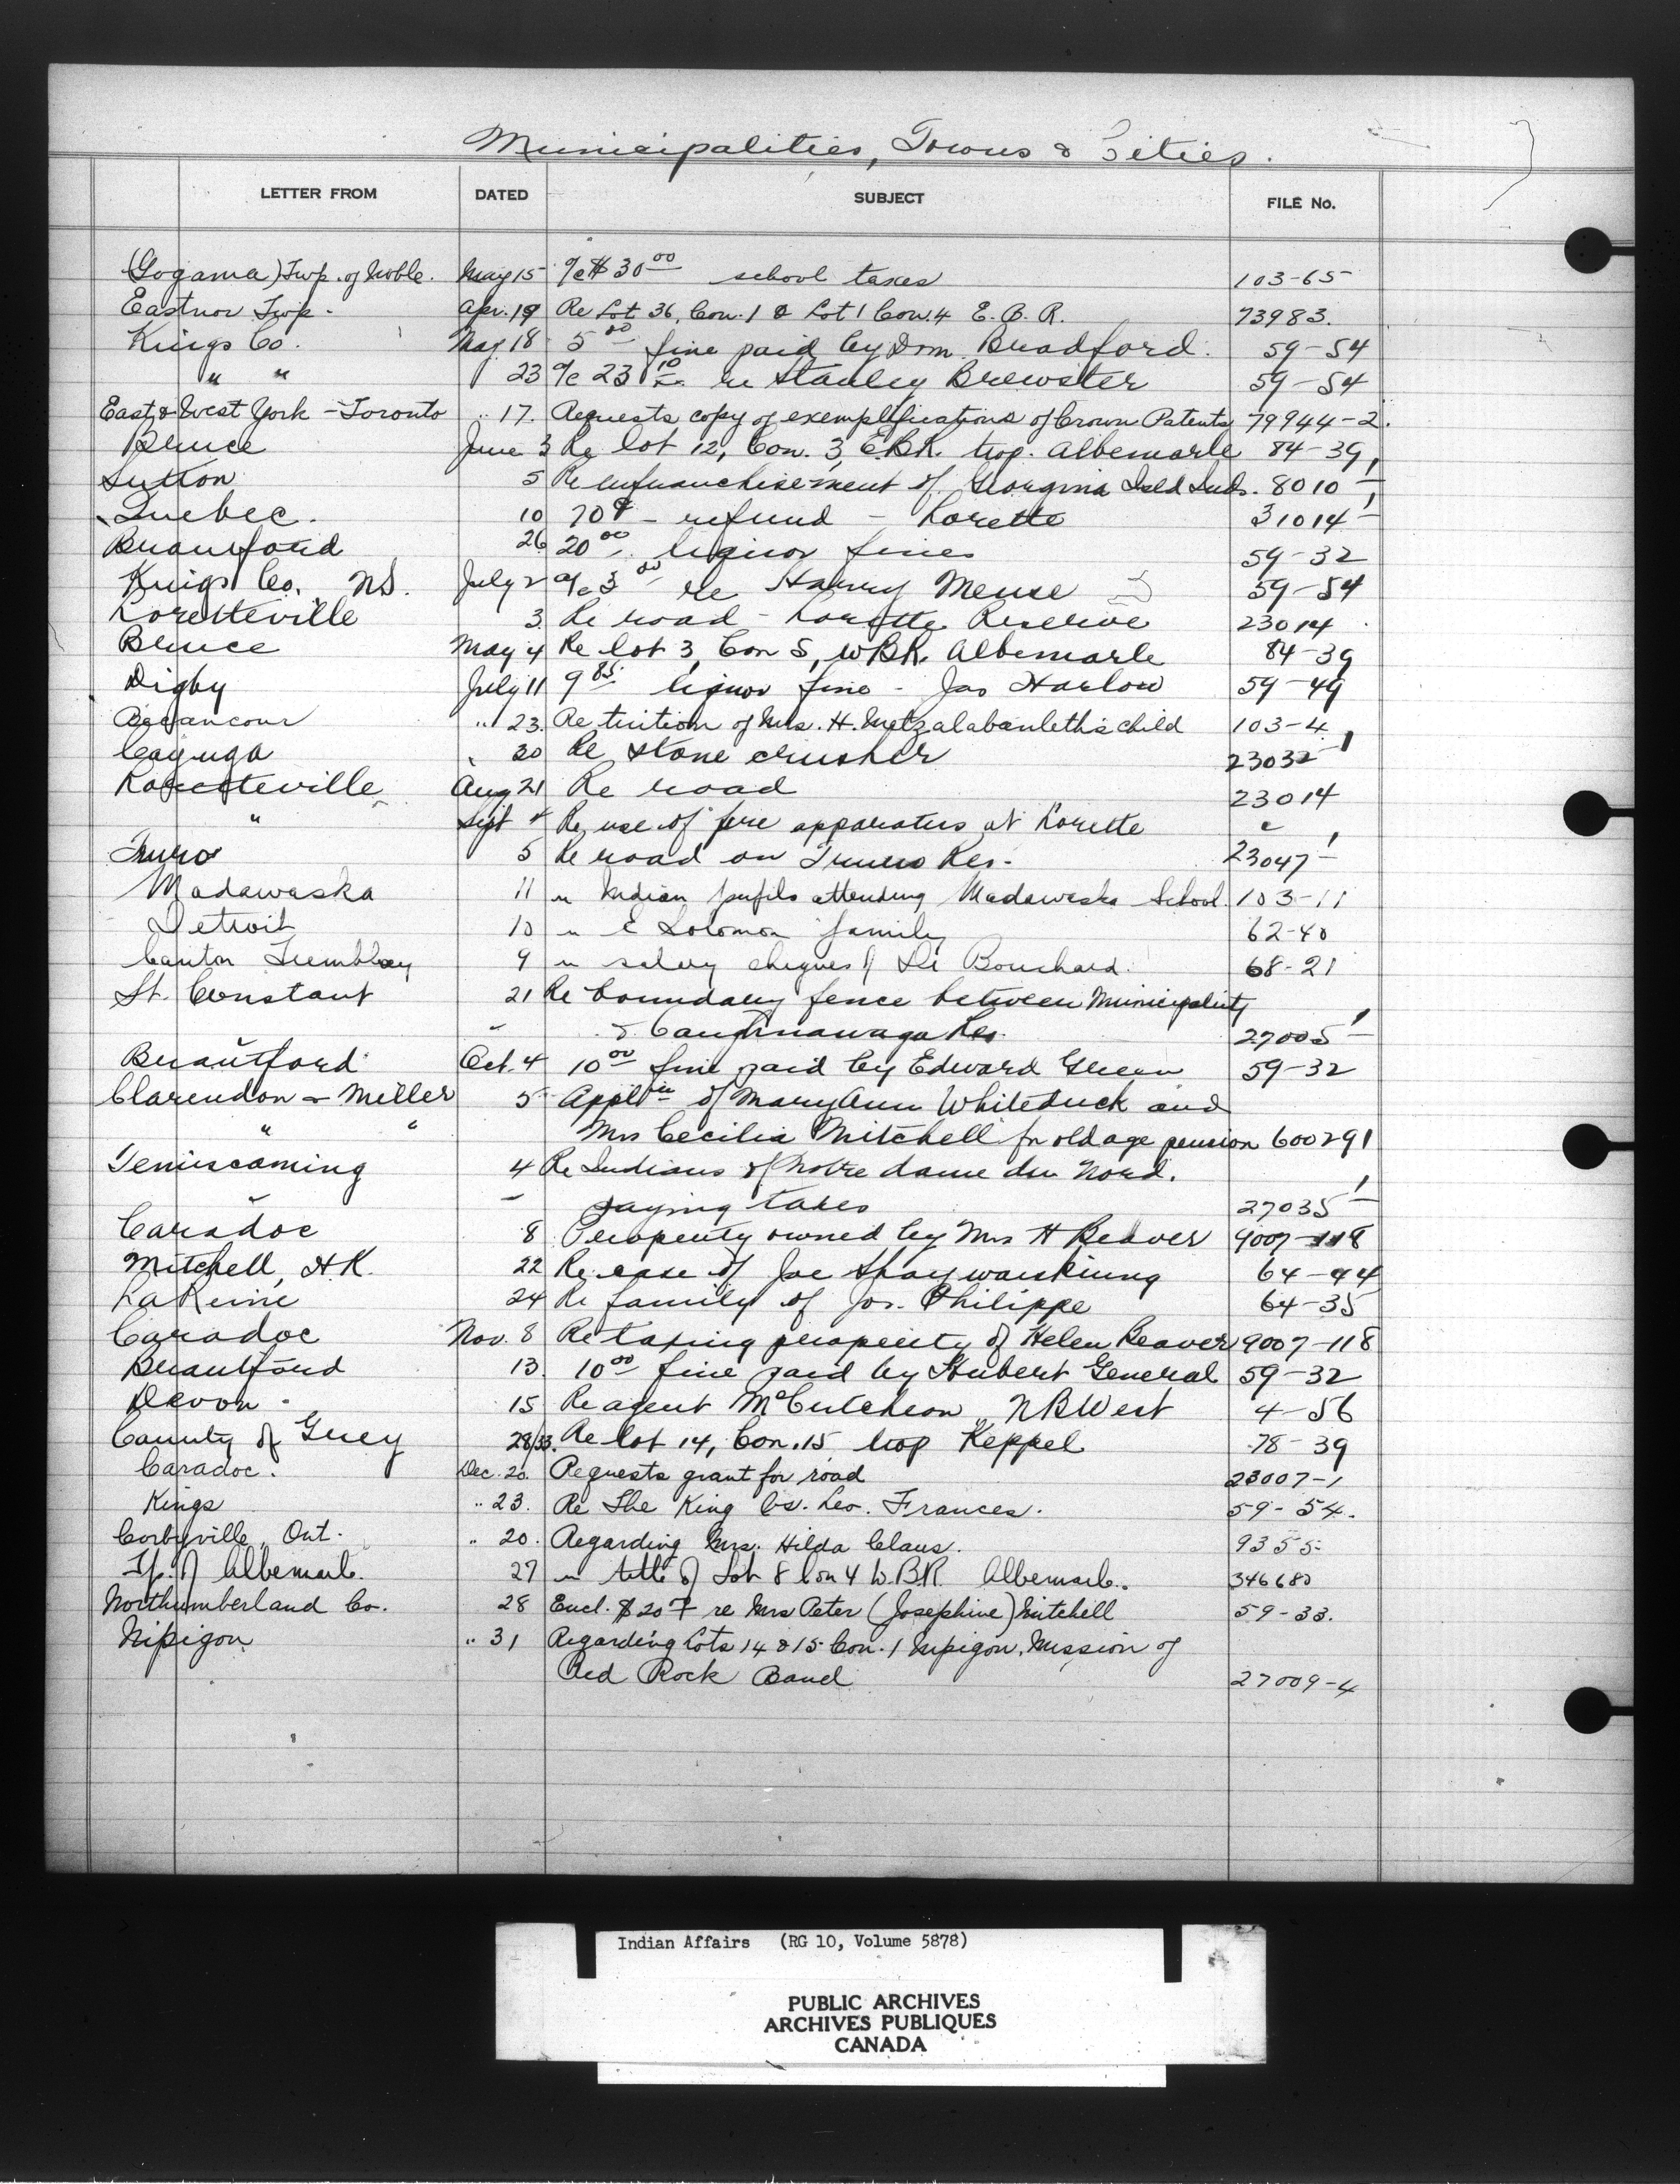 Municipalities, Towns & Cities.
LETTER FROM DATED SUBJECT FILE No.
(Gogama) Twp. of Noble. May 15 a/c $30.00 school taxes 103-65
Eastnor Twp. Apr. 19 Re Lot 36, Con. 1 & Lot 1 Con. 4 E. B. R. 73983.
Kings Co. May 18 5.00 fine paid by Dom. Bradford. 59-54
" " 23 a/c 23.10 re Stanley Brewster 59-54
East & West York - Toronto " 17. Requests copy of exemplifications of Crown Patents 79944-2.
Bruce June 3 Re lot 12, Con. 3, E.B.R. twp. Albemarle 84-39
Sutton 5 Re enfranchisement of Georgina Isld Inds. 8010-1
Quebec. 10 70¢ - refund - Lorette 31014-1
Brantford 26 20.00 liquor fines 59-32
Kings Co. NS. July 2 a/c 3.00 re Harry Meuse 59-54
Loretteville 3. Re road - Lorette Reserve 23014
Bruce May 4 Re lot 3, Con 5, WBR. Albemarle 84-39
Digby July 11 9.85 liquor fine - Jas Harlow 59-49
Becancour " 23. Re tuition of Mrs. H. Metzalabanleth's child 103-4
Cayuga " 30 Re stone crusher 23032-1
Loretteville Aug 21 Re road 23014
" Sept 4 Re use of fire apparatus at Lorette "
Truro 5 Re road on Truro Res. 23047-1
Madawaska 11 " Indian pupils attending Madawaska School. 103-11
Detroit 10 " E Solomon family 62-40
Canton Tremblay 9 " salary cheques of Dr Bouchard. 68-21
St. Constant 21 Re boundary fence between Municipality
" & Caughnawaga Res. 27005-1
Brantford Oct. 4 10.00 fine paid by Edward Green 59-32
Clarendon & Miller 5 Appltn of Mary Ann Whiteduck and
" " Mrs Cecilia Mitchell for old age pension 600291
Temiscaming 4 Re Indians of Notre dame du Nord.
" paying taxes 27035-1
Caradoc 8 Property owned by Mrs H Beaver 9007-118
Mitchell, H.K. 22 Re case of Joe Shaywaiskiung 64-44
La Reine 24 Re family of Jos. Philippe 64-35
Caradoc Nov. 8 Re taxing property of Helen Beaver 9007-118
Brantford 13. 10.00 fine paid by Hubert General 59-32
Devon. 15 Re agent McCutcheon, NB West 4-56
County of Grey 28/33. Re lot 14, Con. 15, twp Keppel 78-39
Caradoc. Dec. 20. Requests grant for road 23007-1
Kings " 23. Re The King vs. Leo. Frances. 59-54.
Corbyville, Ont. " 20. Regarding Mrs. Hilda Claus. 9355
Tp. of Albemarle. 27 " title of Lot 8 Con 4 W.B.R. Albemarle. 346680
Northumberland Co. 28 Encl. $20 re Mrs Peter (Josephine) Mitchell 59-33.
Nipigon " 31 Regarding Lots 14 & 15 Con. 1 Nipigon, Mission of
Red Rock Band 27009-4
Indian Affairs (RG 10, Volume 5878)
PUBLIC ARCHIVES
ARCHIVES PUBLIQUES
CANADA